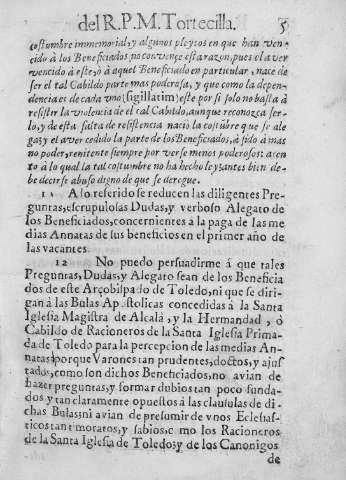 del R. P. M. Tortecilla. 5
costumbre immemorial, y algunos pleytos en que han ven-
cido à los Beneficiados no convençe esta razon, pues el aver
vencido à este, ò à aquel Beneficiado en particular, nace de
ser el tal Cabildo parte mas poderosa, y que como la depen-
dencia es de cada vno (sigillatim) este por si solo no basta à
resistir la violencia de el tal Cabildo, aunque reconozca ser-
lo, y de esta falta de resistencia naciò la costũbre que se ale-
ga: y el aver cedido la parte de los Beneficiados, à sido à mas
no poder, renitente siempre por verse menos poderosos: acen
to à lo qual la tal costumbre no ha hecho ley: antes bien de-
be decirse abuso digno de que se deregue.
11 A lo referido se reducen las diligentes Pre-
guntas, escrupulosas Dudas, y verboso Alegato de
los Beneficiados, concernientes à la paga de las me
dias Annatas de sus beneficios en el primer año de
las vacantes.
12 No puedo persuadirme à que tales
Preguntas, Dudas, y Alegato sean de los Beneficia
dos de este Arçobispado de Toledo, ni que se diri-
gan à las Bulas Apostolicas concedidas à la Santa
Iglesia Magistra de Alcalà, y la Hermandad, ò
Cabildo de Racioneros de la Santa Iglesia Prima-
da de Toledo para la percepcion de las medias An-
natas; porque Varones tan prudentes, doctos, y ajus
tados, como son dichos Beneficiados, no avian de
hazer preguntas, y formar dubios tan poco funda-
dos y tan claramente opuestos à las clausulas de di-
chas Bulas: ni avian de presumir de vnos Eclesias-
ticos tan timoratos, y sabios, como los Racioneros
de la Santa Iglesia de Toledo: y de los Canonigos
de